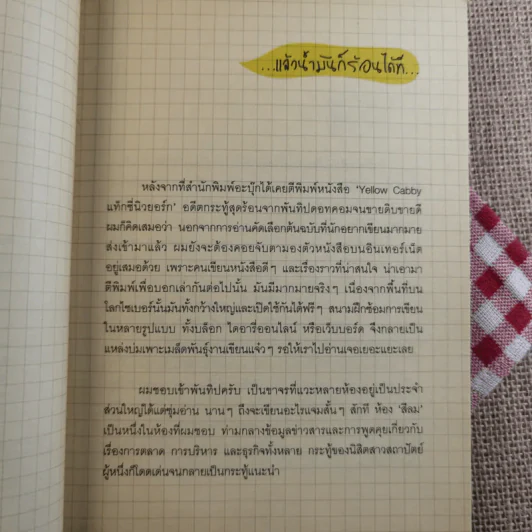 ...แล้วน้ำมันก็ร้อนได้ที่...
หลังจากที่สำนักพิมพ์อะบุ๊กได้เคยตีพิมพ์หนังสือ 'Yellow Cabby
แท็กซี่นิวยอร์ก' อดีตกระทู้สุดร้อนจากพันทิปดอทคอมจนขายดิบขายดี
ผมก็คิดเสมอว่า นอกจากการอ่านคัดเลือกต้นฉบับที่นักอยากเขียนมากมาย
ส่งเข้ามาแล้ว ผมยังจะต้องคอยจับตามองตัวหนังสือบนอินเทอร์เน็ต
อยู่เสมอด้วย เพราะคนเขียนหนังสือดีๆ และเรื่องราวที่น่าสนใจ น่าเอามา
ตีพิมพ์เพื่อบอกเล่ากันต่อไปนั้น มันมีมากมายจริงๆ เนื่องจากพื้นที่บน
โลกไซเบอร์นั้นมันทั้งกว้างใหญ่และเปิดใช้กันได้ฟรีๆ สนามฝึกซ้อมการเขียน
ในหลายรูปแบบ ทั้งบล็อก ไดอารี่ออนไลน์ หรือเว็บบอร์ด จึงกลายเป็น
แหล่งบ่มเพาะเมล็ดพันธุ์งานเขียนแจ๋วๆ รอให้เราไปอ่านเจอเยอะแยะเลย
ผมชอบเข้าพันทิปครับ เป็นขาจรที่แวะหลายห้องอยู่เป็นประจำ
ส่วนใหญ่ได้แต่ซุ่มอ่าน นานๆ ถึงจะเขียนอะไรแจมสั้นๆ สักที ห้อง 'สีลม'
เป็นหนึ่งในห้องที่ผมชอบ ท่ามกลางข้อมูลข่าวสารและการพูดคุยเกี่ยวกับ
เรื่องการตลาด การบริหาร และธุรกิจทั้งหลาย กระทู้ของนิสิตสาวสถาปัตย์
ผู้หนึ่งก็โดดเด่นจนกลายเป็นกระทู้แนะนำ